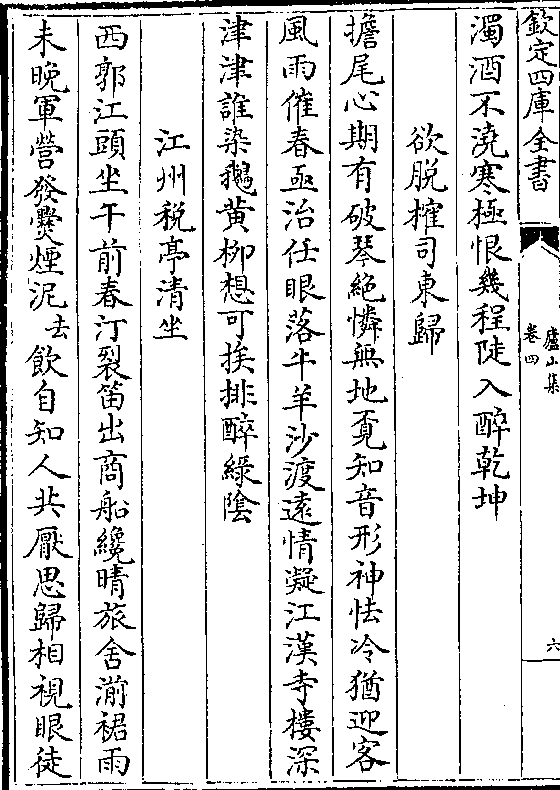 欽定四庫全書
廬山集
卷四
六
濁酒不澆寒極恨幾程陡入醉乾坤
欲脫榷司東歸
擔尾心期有破琴絶憐無地覔知音形神怯冷猶迎客
風雨催春亟治任眼落牛羊沙渡逺情凝江漢寺樓深
津津誰染鵝黄栁想可挨排醉緑隂
江州税亭清坐
西郭江頭坐午前春汀裂笛出商船纔晴旅舍湔裙雨
未晚軍營發爨煙泥去飲自知人共厭思歸相視眼徒